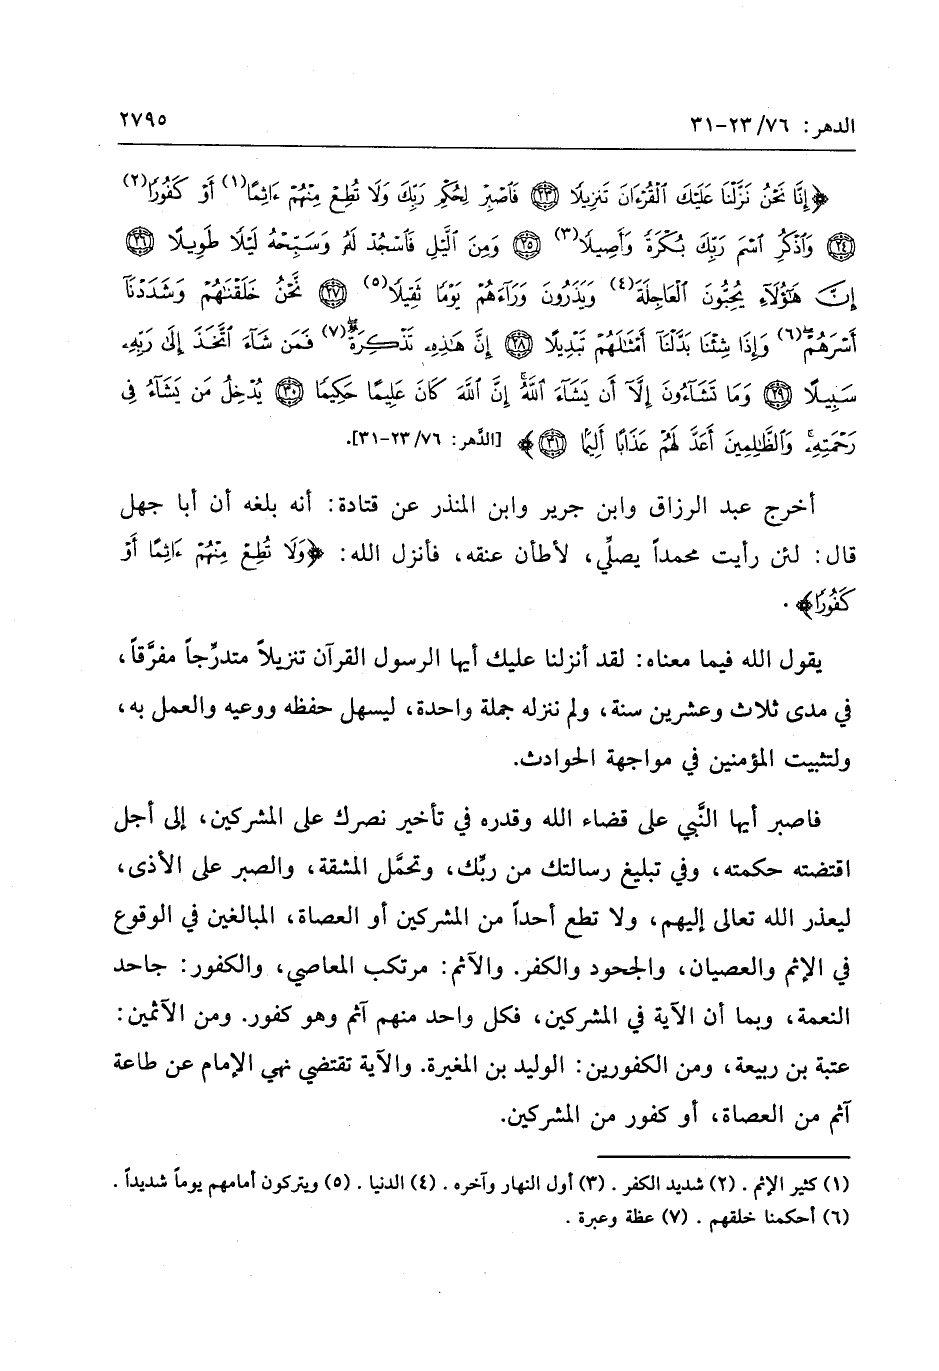 الدهر: ٧٦/ ٢٣-٣١ ٢٧٩٥
﴿إِنَّا نَحْنُ نَزَّلْنَا عَلَيْكَ ٱلْقُرْءَانَ تَنزِيلًا ﴿٢٣﴾ فَٱصْبِرْ لِحُكْمِ رَبِّكَ وَلَا تُطِعْ مِنْهُمْ ءَاثِمًا(١) أَوْ كَفُورًا(٢)
﴿٢٤﴾ وَٱذْكُرِ ٱسْمَ رَبِّكَ بُكْرَةً وَأَصِيلًا(٣) ﴿٢٥﴾ وَمِنَ ٱلَّيْلِ فَٱسْجُدْ لَهُۥ وَسَبِّحْهُ لَيْلًا طَوِيلًا ﴿٢٦﴾
إِنَّ هَٰٓؤُلَآءِ يُحِبُّونَ ٱلْعَاجِلَةَ(٤) وَيَذَرُونَ وَرَآءَهُمْ يَوْمًا ثَقِيلًا(٥) ﴿٢٧﴾ نَّحْنُ خَلَقْنَٰهُمْ وَشَدَدْنَآ
أَسْرَهُمْۖ(٦) وَإِذَا شِئْنَا بَدَّلْنَآ أَمْثَٰلَهُمْ تَبْدِيلًا ﴿٢٨﴾ إِنَّ هَٰذِهِۦ تَذْكِرَةٌۖ(٧) فَمَن شَآءَ ٱتَّخَذَ إِلَىٰ رَبِّهِۦ
سَبِيلًا ﴿٢٩﴾ وَمَا تَشَآءُونَ إِلَّآ أَن يَشَآءَ ٱللَّهُۚ إِنَّ ٱللَّهَ كَانَ عَلِيمًا حَكِيمًا ﴿٣٠﴾ يُدْخِلُ مَن يَشَآءُ فِى
رَحْمَتِهِۦۚ وَٱلظَّٰلِمِينَ أَعَدَّ لَهُمْ عَذَابًا أَلِيمًا ﴿٣١﴾﴾ [الدَّهر: ٧٦/ ٢٣-٣١].
أخرج عبد الرزاق وابن جرير وابن المنذر عن قتادة: أنه بلغه أن أبا جهل
قال: لئن رأيت محمداً يصلِّي، لأطأن عنقه، فأنزل الله: ﴿وَلَا تُطِعْ مِنْهُمْ ءَاثِمًا أَوْ
كَفُورًا﴾.
يقول الله فيما معناه: لقد أنزلنا عليك أيها الرسول القرآن تنزيلاً متدرِّجاً مفرَّقاً،
في مدى ثلاث وعشرين سنة، ولم ننزله جملة واحدة، ليسهل حفظه ووعيه والعمل به،
ولتثبيت المؤمنين في مواجهة الحوادث.
فاصبر أيها النَّبي على قضاء الله وقدره في تأخير نصرك على المشركين، إلى أجل
اقتضته حكمته، وفي تبليغ رسالتك من ربِّك، وتحمَّل المشقة، والصبر على الأذى،
ليعذر الله تعالى إليهم، ولا تطع أحداً من المشركين أو العصاة، المبالغين في الوقوع
في الإثم والعصيان، والجحود والكفر. والآثم: مرتكب المعاصي، والكفور: جاحد
النعمة، وبما أن الآية في المشركين، فكل واحد منهم آثم وهو كفور. ومن الآثمين:
عتبة بن ربيعة، ومن الكفورين: الوليد بن المغيرة. والآية تقتضي نهي الإمام عن طاعة
آثم من العصاة، أو كفور من المشركين.
(١) كثير الإثم. (٢) شديد الكفر. (٣) أول النهار وآخره. (٤) الدنيا. (٥) ويتركون أمامهم يوماً شديداً.
(٦) أحكمنا خلقهم. (٧) عظة وعبرة.